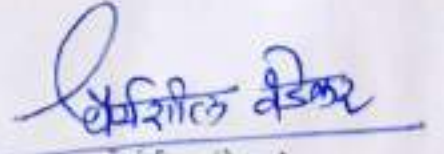 धैर्यशील वंडेकर